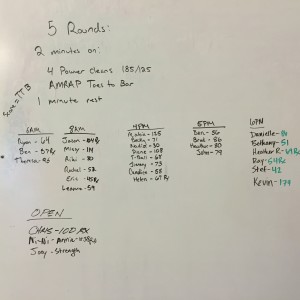 5 Rounds:
2 minutes on:
4 Power Cleans 185/125
AMRAP Toes to Bar
1 minute rest
Score = TTB
6AM
Ryan - 64
Ben - 57Rx
Theresa - 96
8AM
Jason - 84Rx
Micy - 111
Riki - 80
Rachel - 52
Eric - 45Rx
Leanne - 59
4PM
Robbie - 125
Becky - 71
Rachel - 30
Diane - 108
T-Ball - 68
Jimmy - 73
Candice - 58
Helen - 67 Rx
5PM
Ben - 86
Brad - 86
Heather - 80
John - 79
6PM
Danielle - 84
Bethany - 51
Heather R - 69Rx
Ray - 54Rx
Stef - 42
Kevin - 179
OPEN
CHRIS - 100 RX
Nikki - Annie - 11:38Rx
Joey - Strength